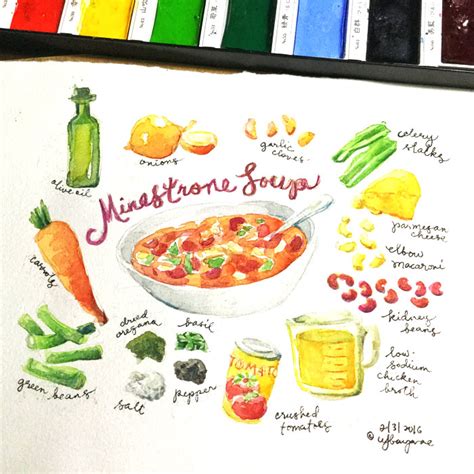 olive oil
onions
garlic
cloves
celery
stalks
Minestrone Soup
parmesan
cheese
carrots
elbow
macaroni
kidney
beans
dried
oregano
basil
green beans
salt
pepper
TOMATO
crushed
tomatoes
low-
sodium
chicken
broth
2/3/2016